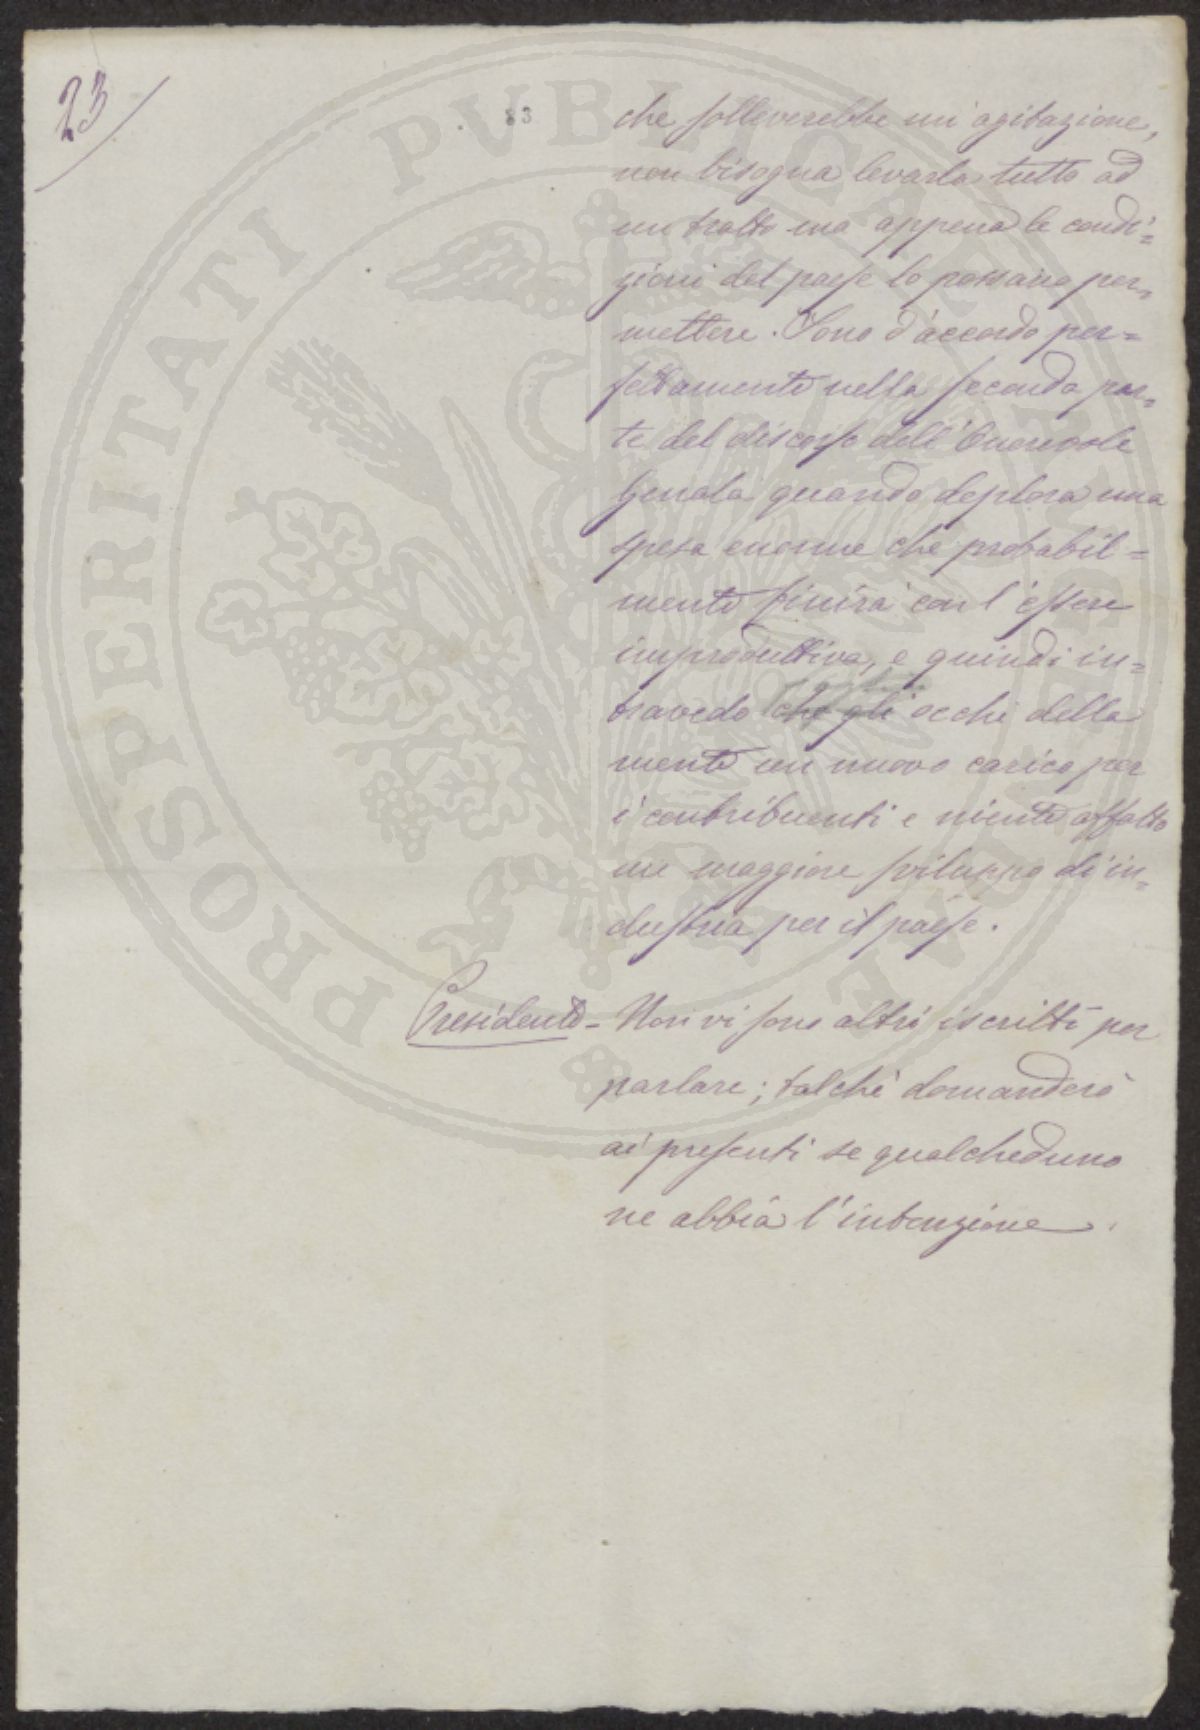 23
83
che solleverebbe un'agitazione,
non bisogna levarla tutto ad
un tratto ma appena le condi=
zioni del paese lo possano per=
mettere. Sono d'accordo per=
fettamente nella seconda par=
te del discorso dell'Onorevole
Genala quando deplora una
spesa enorme che probabil=
mente finirà con l'essere
improduttiva, e quindi in=
travedo che gli occhi della
mente un nuovo carico per
i contribuenti e niente affatto
un maggiore sviluppo di in=
dustria per il paese.
Presidente - Non vi sono altri iscritti per
parlare; talchè domanderò
ai presenti se qualcheduno
ne abbia l'intenzione.
PROSPERITATI PVBLICAE